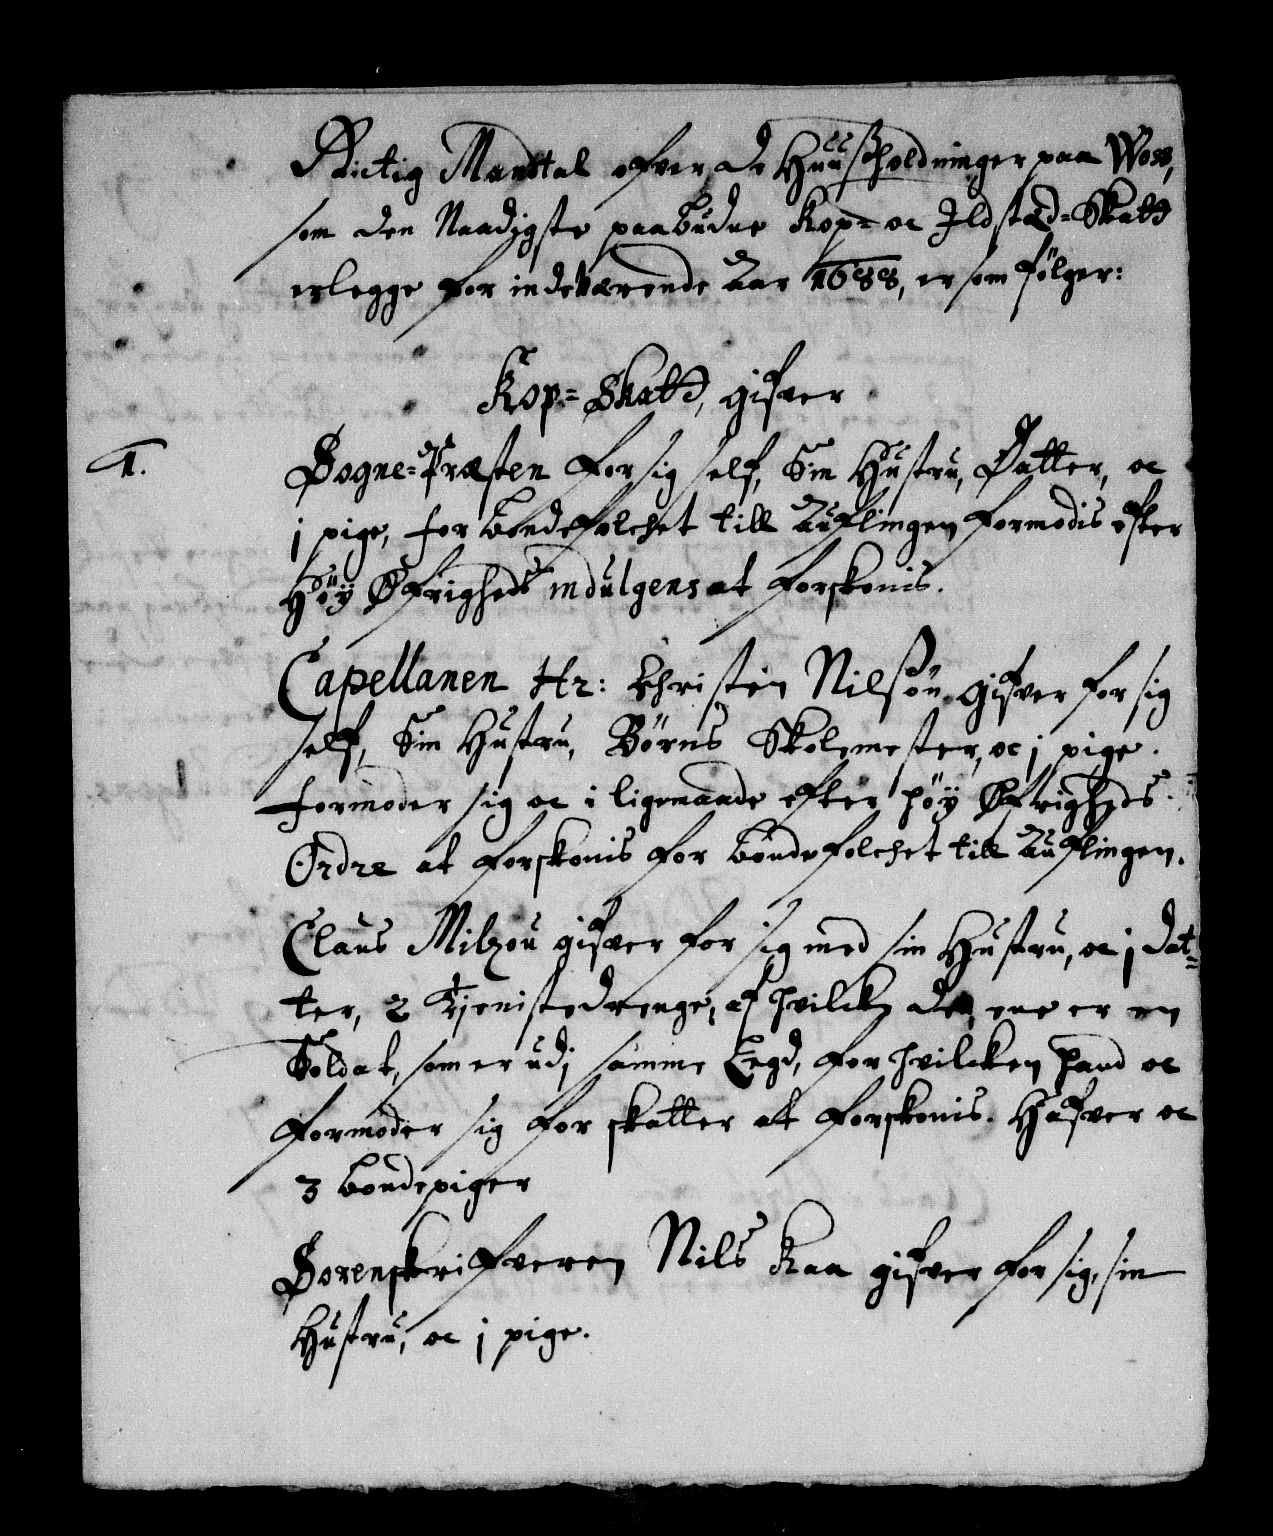 Rictig Mandtal ofver de Huusholdninger paa Woss,
som den Naadigste paabudne Kop- oc Ildsted-Skatt
erlegge for indeværende Aar 1688, er som følger:
Kop-Skatt, gifver
1.
Sogne-Præsten for sig self, Sin Hustru, Datter, oc
j pige, for bondefolchet till Auflingen formodis efter
Høÿ Øfrigheds indulgens at forskonis.
Capellanen Hr: Christen Nilsøn gifver for sig
self, Sin Hustru, Børns Skolemester, oc j pige.
formoder sig oc i ligemaade efter høÿ Øfrigheds
Ordre at forskonis for bondefolchet till Auflingen.
Claus Milzou gifver for sig med sin Hustru, oc j dat-
ter, 2 Tjenistedrenge, af hvilcke den ene er en
Soldat, som er udj samme Legd, for hvilcken hand oc
formoder sig for skatter at forskonis. Hafver oc
3 bondepiger
Sorenskrifveren Nils Kaa gifver for sig, sin
Hustru, oc j pige.